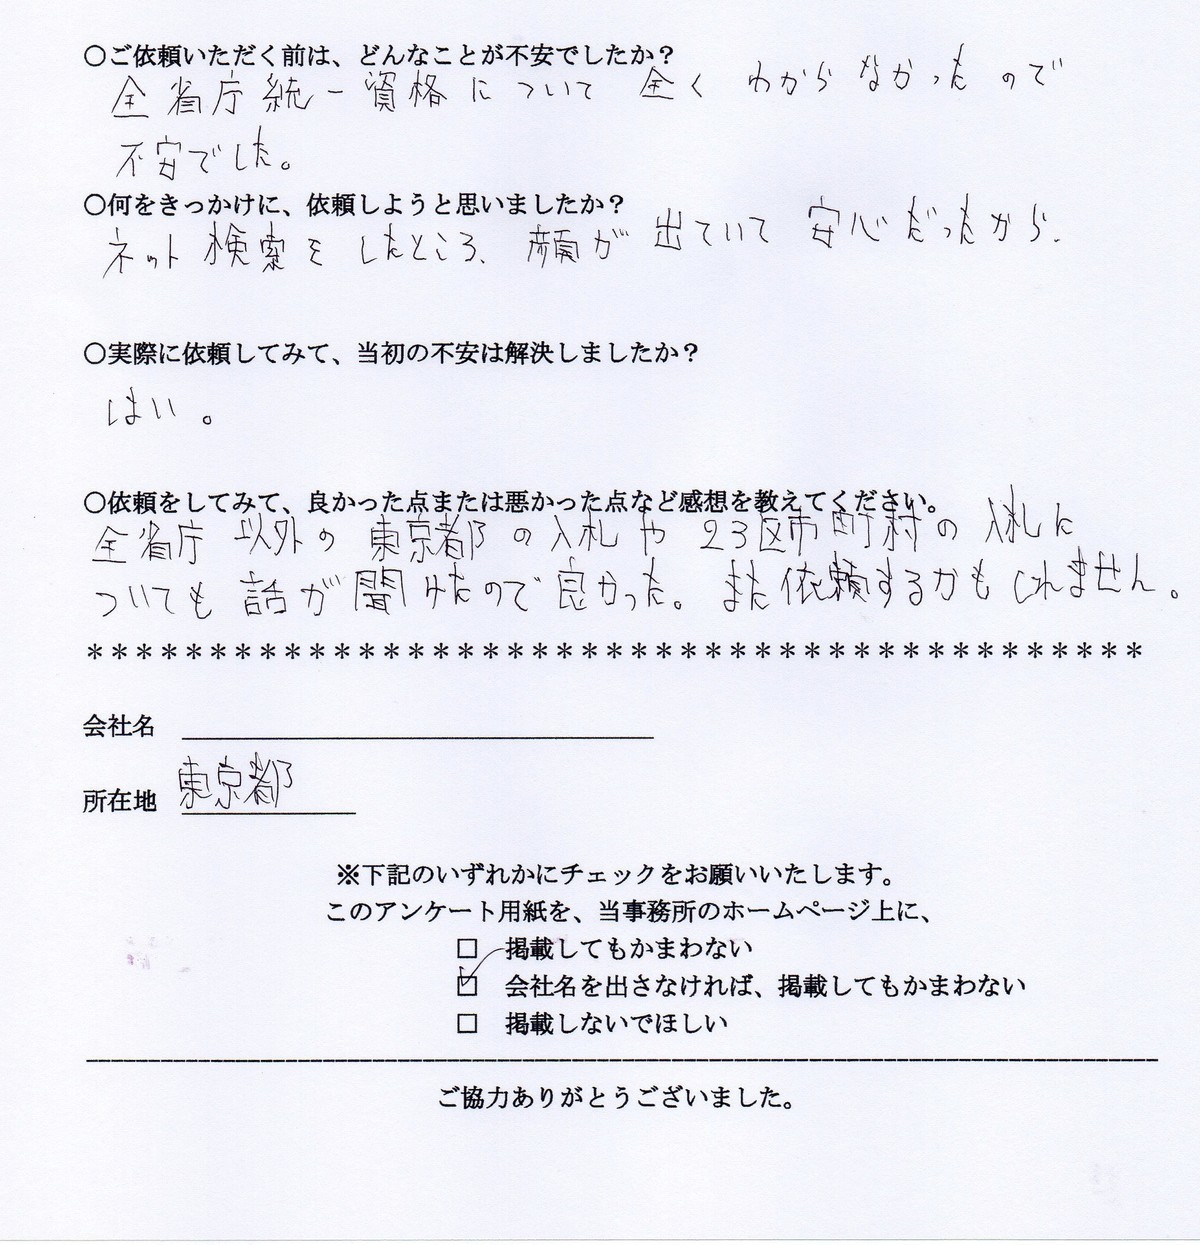 ○ご依頼いただく前は、どんなことが不安でしたか？
全省庁統一資格について 全く わからなかったので
不安でした。
○何をきっかけに、依頼しようと思いましたか？
ネット検索をしたところ、顔が出ていて安心だったから、
○実際に依頼してみて、当初の不安は解決しましたか？
はい。
○依頼をしてみて、良かった点または悪かった点など感想を教えてください。
全省庁以外の東京都の入札や23区市町村の入札に
ついても話が聞けたので良かった。また依頼するかもしれません。
＊＊＊＊＊＊＊＊＊＊＊＊＊＊＊＊＊＊＊＊＊＊＊＊＊＊＊＊＊＊＊＊＊＊＊＊＊＊＊＊＊＊＊
会社名
所在地 東京都
※下記のいずれかにチェックをお願いいたします。
このアンケート用紙を、当事務所のホームページ上に、
□ 掲載してもかまわない
☑ 会社名を出さなければ、掲載してもかまわない
□ 掲載しないでほしい
ご協力ありがとうございました。